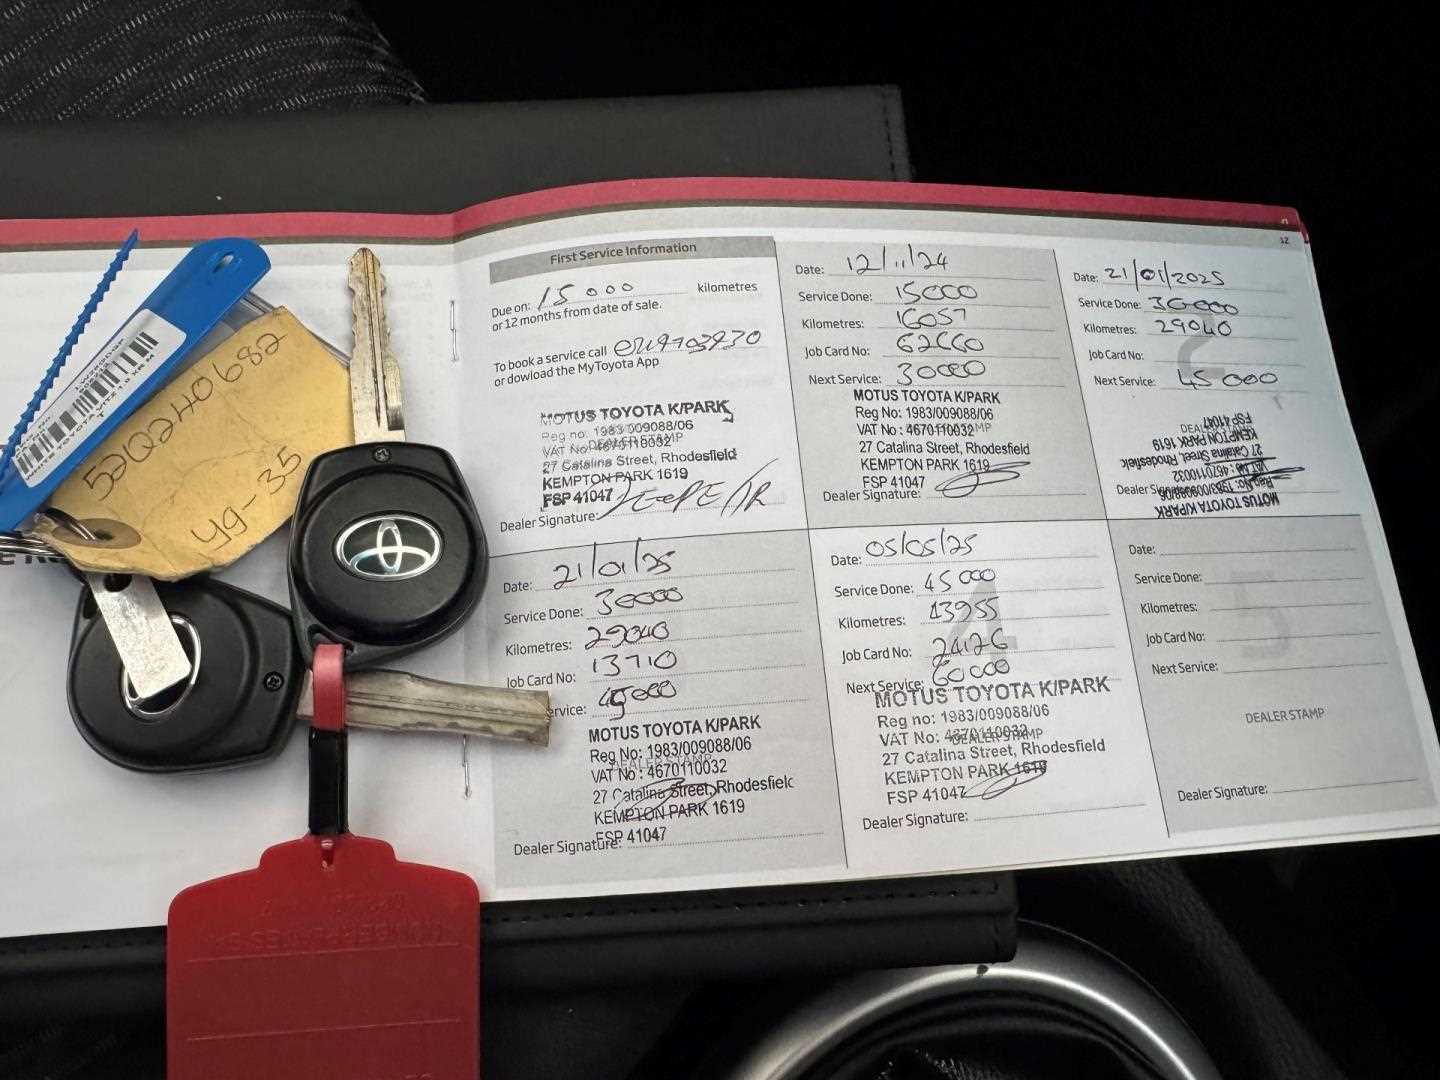 12
First Service Information
Due on: 15000 kilometres
or 12 months from date of sale.
To book a service call
or dowload the MyToyota App
MOTUS TOYOTA K/PARK
Reg no: 1983/009088/06
VAT No: 4670110032
DEALER STAMP
27 Catalina Street, Rhodesfield
KEMPTON PARK 1619
FSP 41047
Dealer Signature:
Date: 12/11/24
Service Done: 15000
Kilometres: 16057
Job Card No: 62660
Next Service: 30000
MOTUS TOYOTA K/PARK
Reg No: 1983/009088/06
VAT No : 4670110032
27 Catalina Street, Rhodesfield
KEMPTON PARK 1619
FSP 41047
Dealer Signature:
Date: 21/01/2025
Service Done: 30000
Kilometres: 29040
Job Card No:
Next Service: 45000
FSP 41047
KEMPTON PARK 1619
27 Catalina Street, Rhodesfield
VAT No: 4670110032
Reg No: 1983/009088/06
MOTUS TOYOTA K/PARK
Date: 21/01/25
Service Done: 30000
Kilometres: 29040
Job Card No: 13710
ervice: 45000
MOTUS TOYOTA K/PARK
Reg No: 1983/009088/06
VAT No : 4670110032
27 Catalina Street, Rhodesfield
KEMPTON PARK 1619
FSP 41047
Dealer Signature:
Date: 05/05/25
Service Done: 45000
Kilometres: 43955
Job Card No: 24126
Next Service: 60000
MOTUS TOYOTA K/PARK
Reg no: 1983/009088/06
VAT No: 4670110032
DEALER STAMP
27 Catalina Street, Rhodesfield
KEMPTON PARK 1619
FSP 41047
Dealer Signature:
Date:
Service Done:
Kilometres:
Job Card No:
Next Service:
DEALER STAMP
Dealer Signature:
52Q240682
yg-35